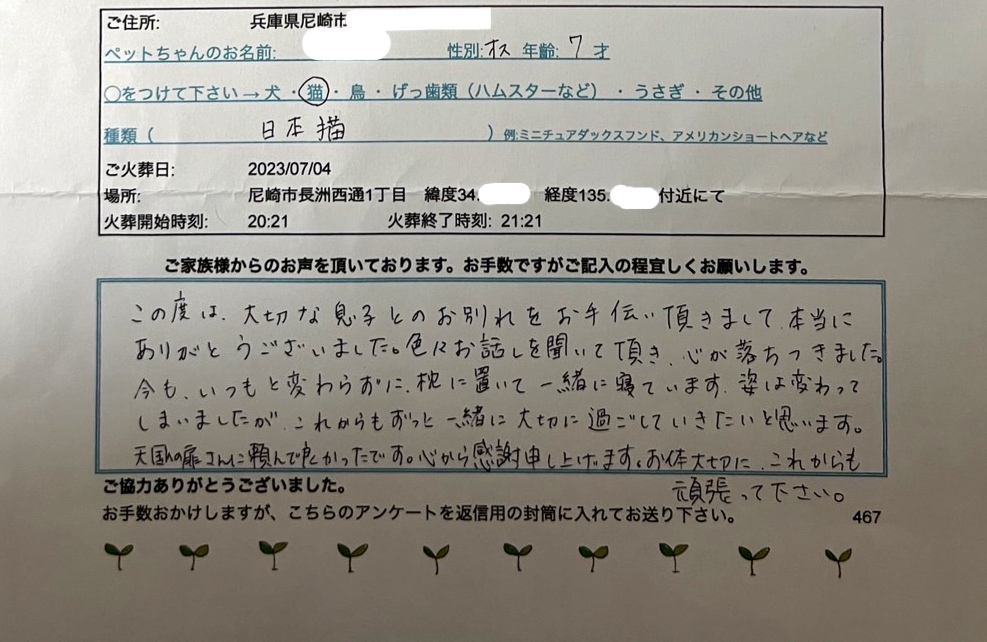 ご住所: 兵庫県尼崎市
ペットちゃんのお名前: 性別:オス 年齢:7才
○をつけて下さい→犬・猫・鳥・げっ歯類（ハムスターなど）・うさぎ・その他
種類（ 日本猫 ）例:ミニチュアダックスフンド、アメリカンショートヘアなど
ご火葬日: 2023/07/04
場所: 尼崎市長洲西通1丁目 緯度34. 経度135. 付近にて
火葬開始時刻: 20:21 火葬終了時刻: 21:21
ご家族様からのお声を頂いております。お手数ですがご記入の程宜しくお願いします。
この度は、大切な息子とのお別れをお手伝い頂きまして、本当に
ありがとうございました。色々お話しを聞いて頂き、心が落ちつきました。
今も、いつもと変わらずに、枕に置いて一緒に寝ています。姿は変わって
しまいましたが、これからもずっと一緒に大切に過ごしていきたいと思います。
天国の扉さんに頼んで良かったです。心から感謝申し上げます。お体大切に、これからも
頑張って下さい。
ご協力ありがとうございました。
お手数おかけしますが、こちらのアンケートを返信用の封筒に入れてお送り下さい。 467